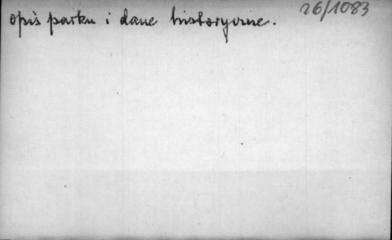 26/1083
opis parku i dane historyczne.